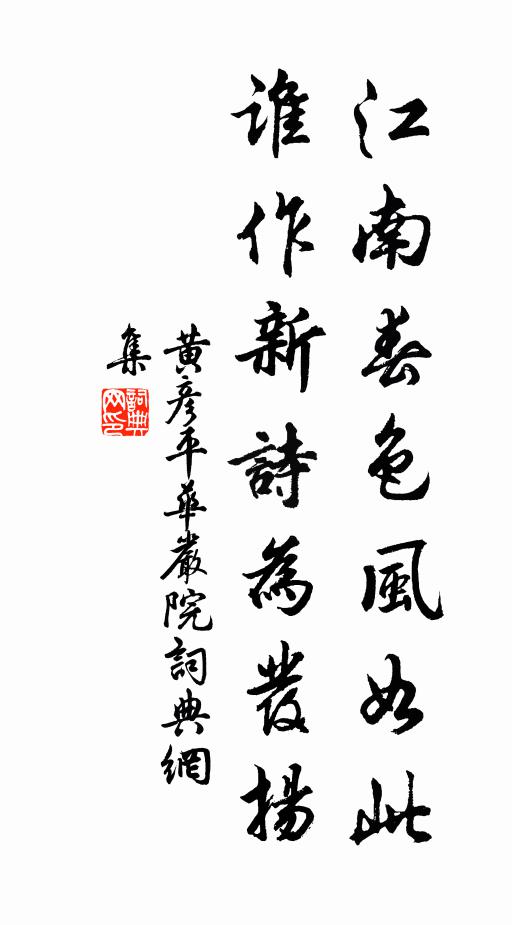 江南春色風如此
誰作新詩為發揚
黃彥平華嚴院詞典網
集
詞典
网印